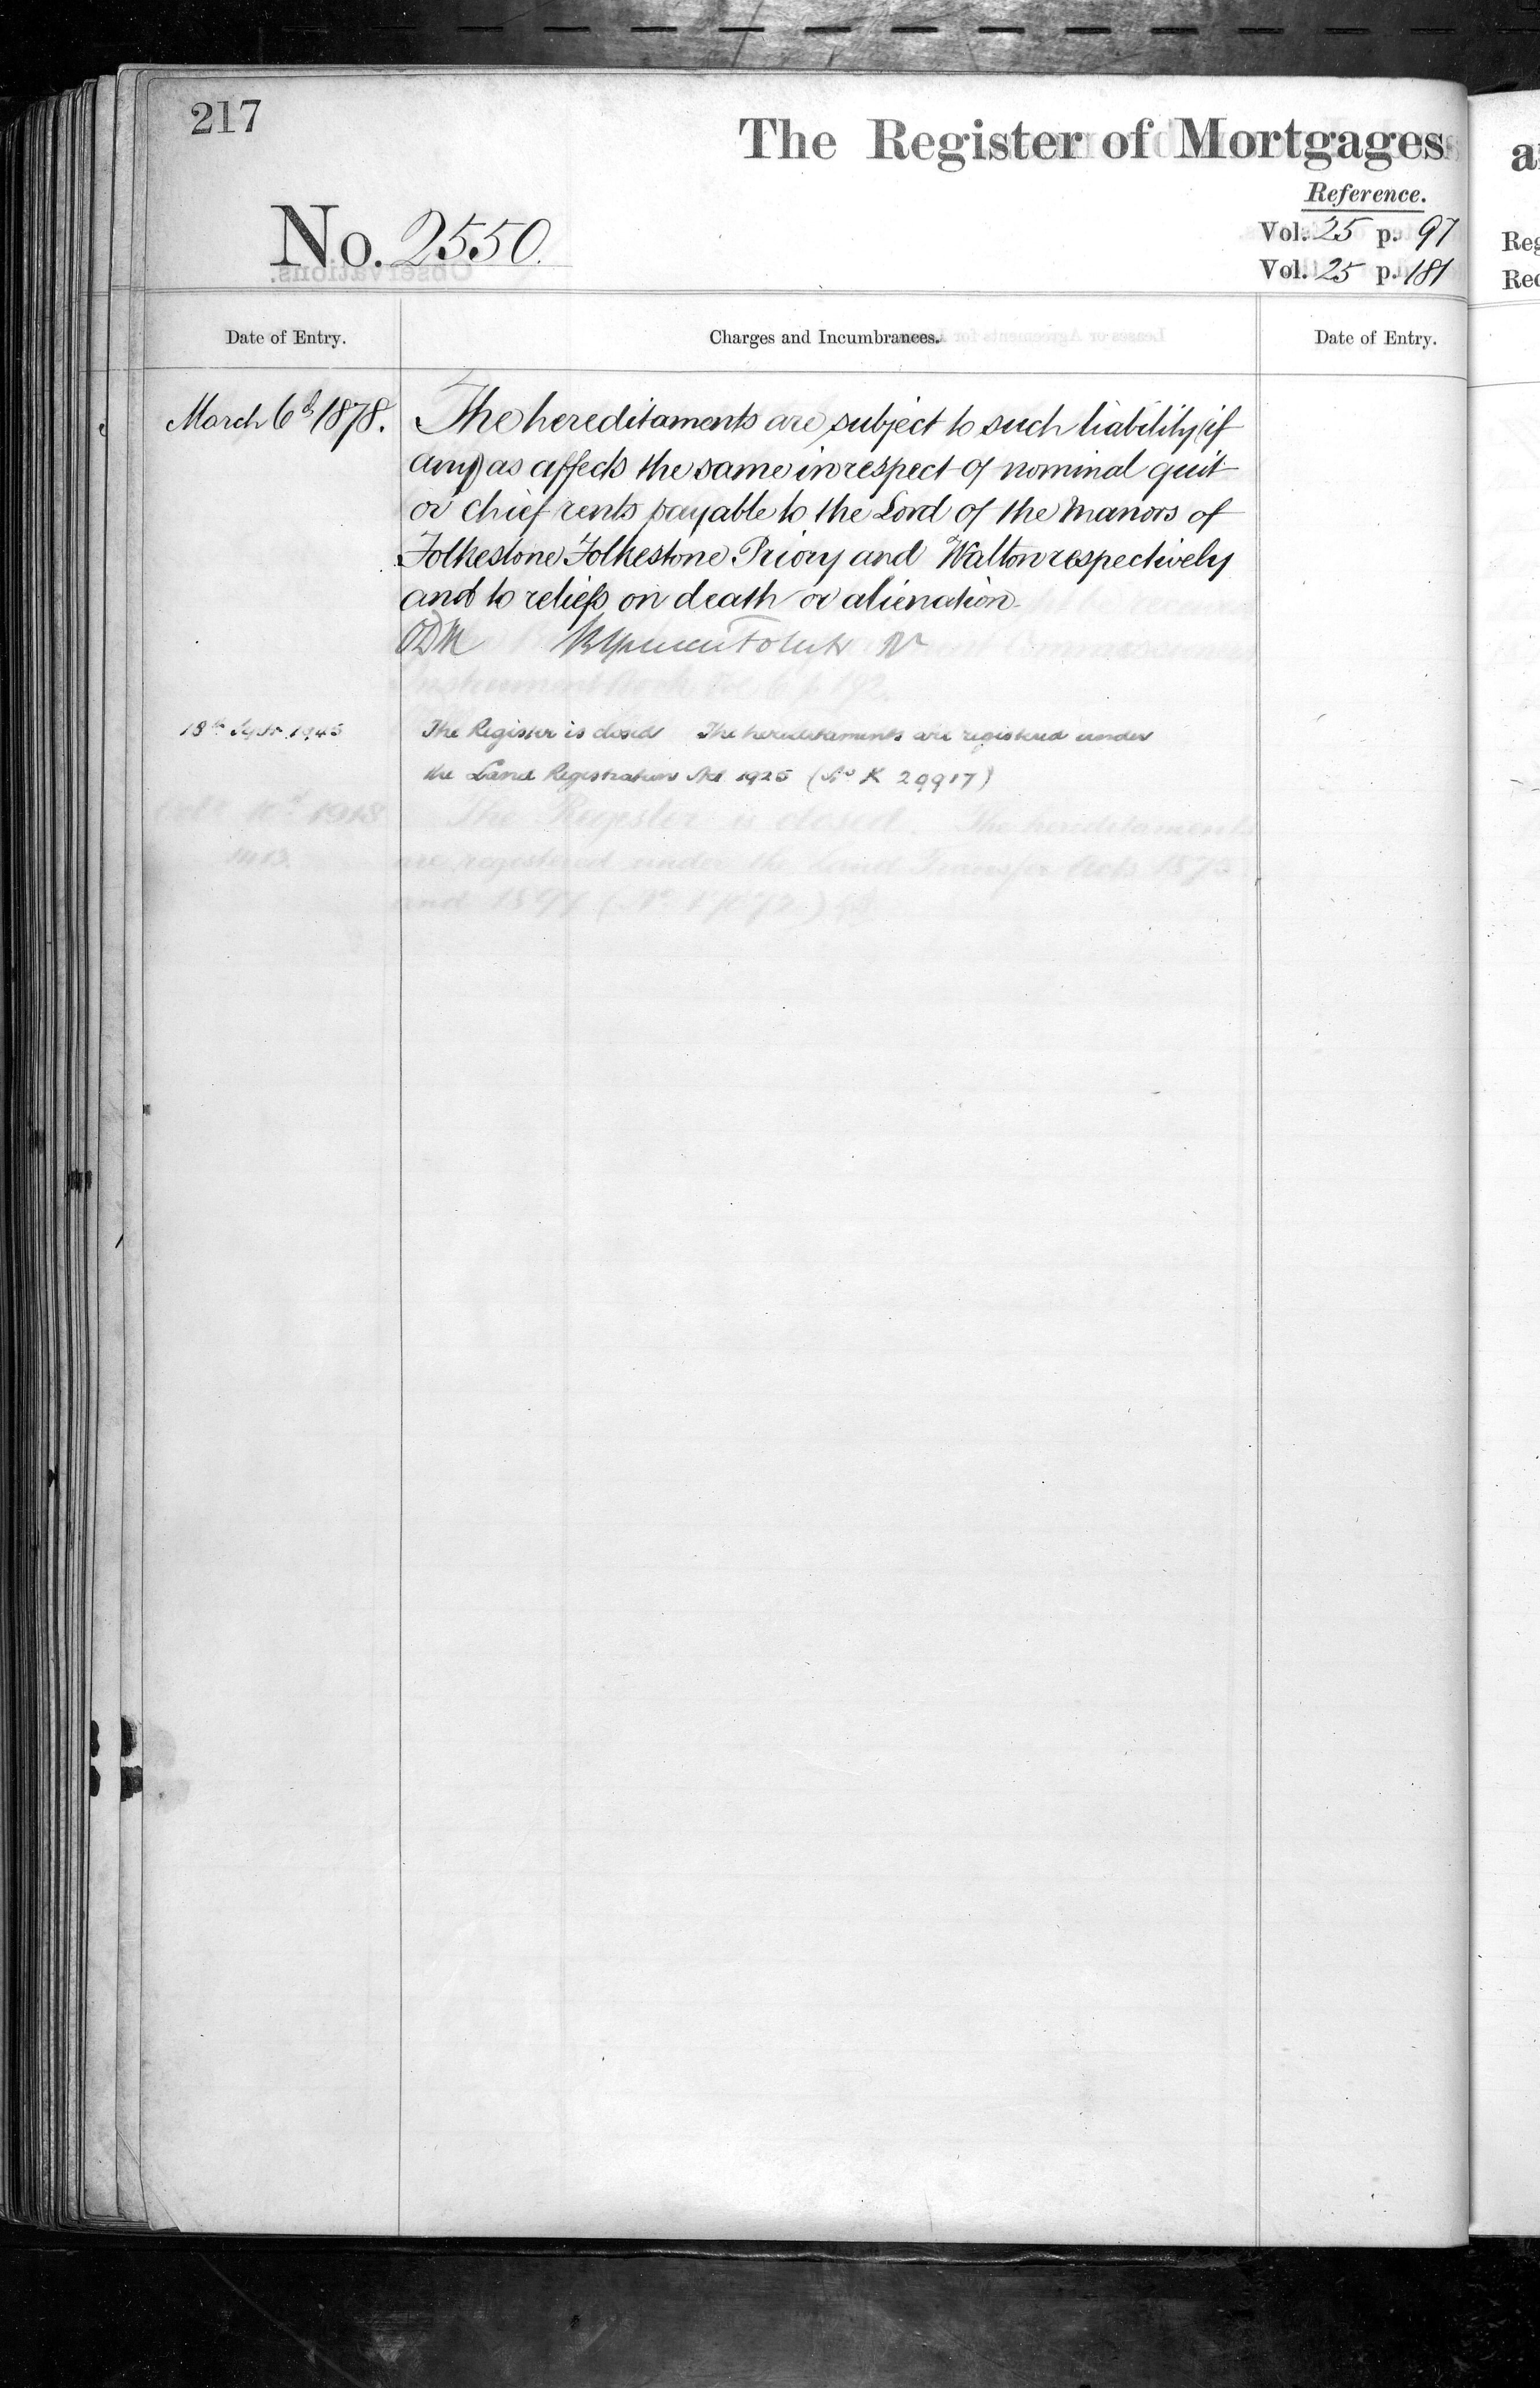 217
The Register of Mortgages
Reference.
No. 2550.
Vol. 25 p. 97
Vol. 25 p. 181
Reg
Rec
Date of Entry.
Charges and Incumbrances.
Date of Entry.
March 6th 1878.
The hereditaments are subject to such liability (if
any) as affects the same in respect of nominal quit
or chief rents payable to the Lord of the Manors of
Folkestone Folkestone Priory and Walton respectively
and to reliefs on death or alienation
18th Septr. 1945
The Register is closed The hereditaments are registered under
the Land Registration Act 1925 (No K 29917)
1913
The Register is closed. The hereditaments
are registered under the Land Transfer Acts 1875
and 1897